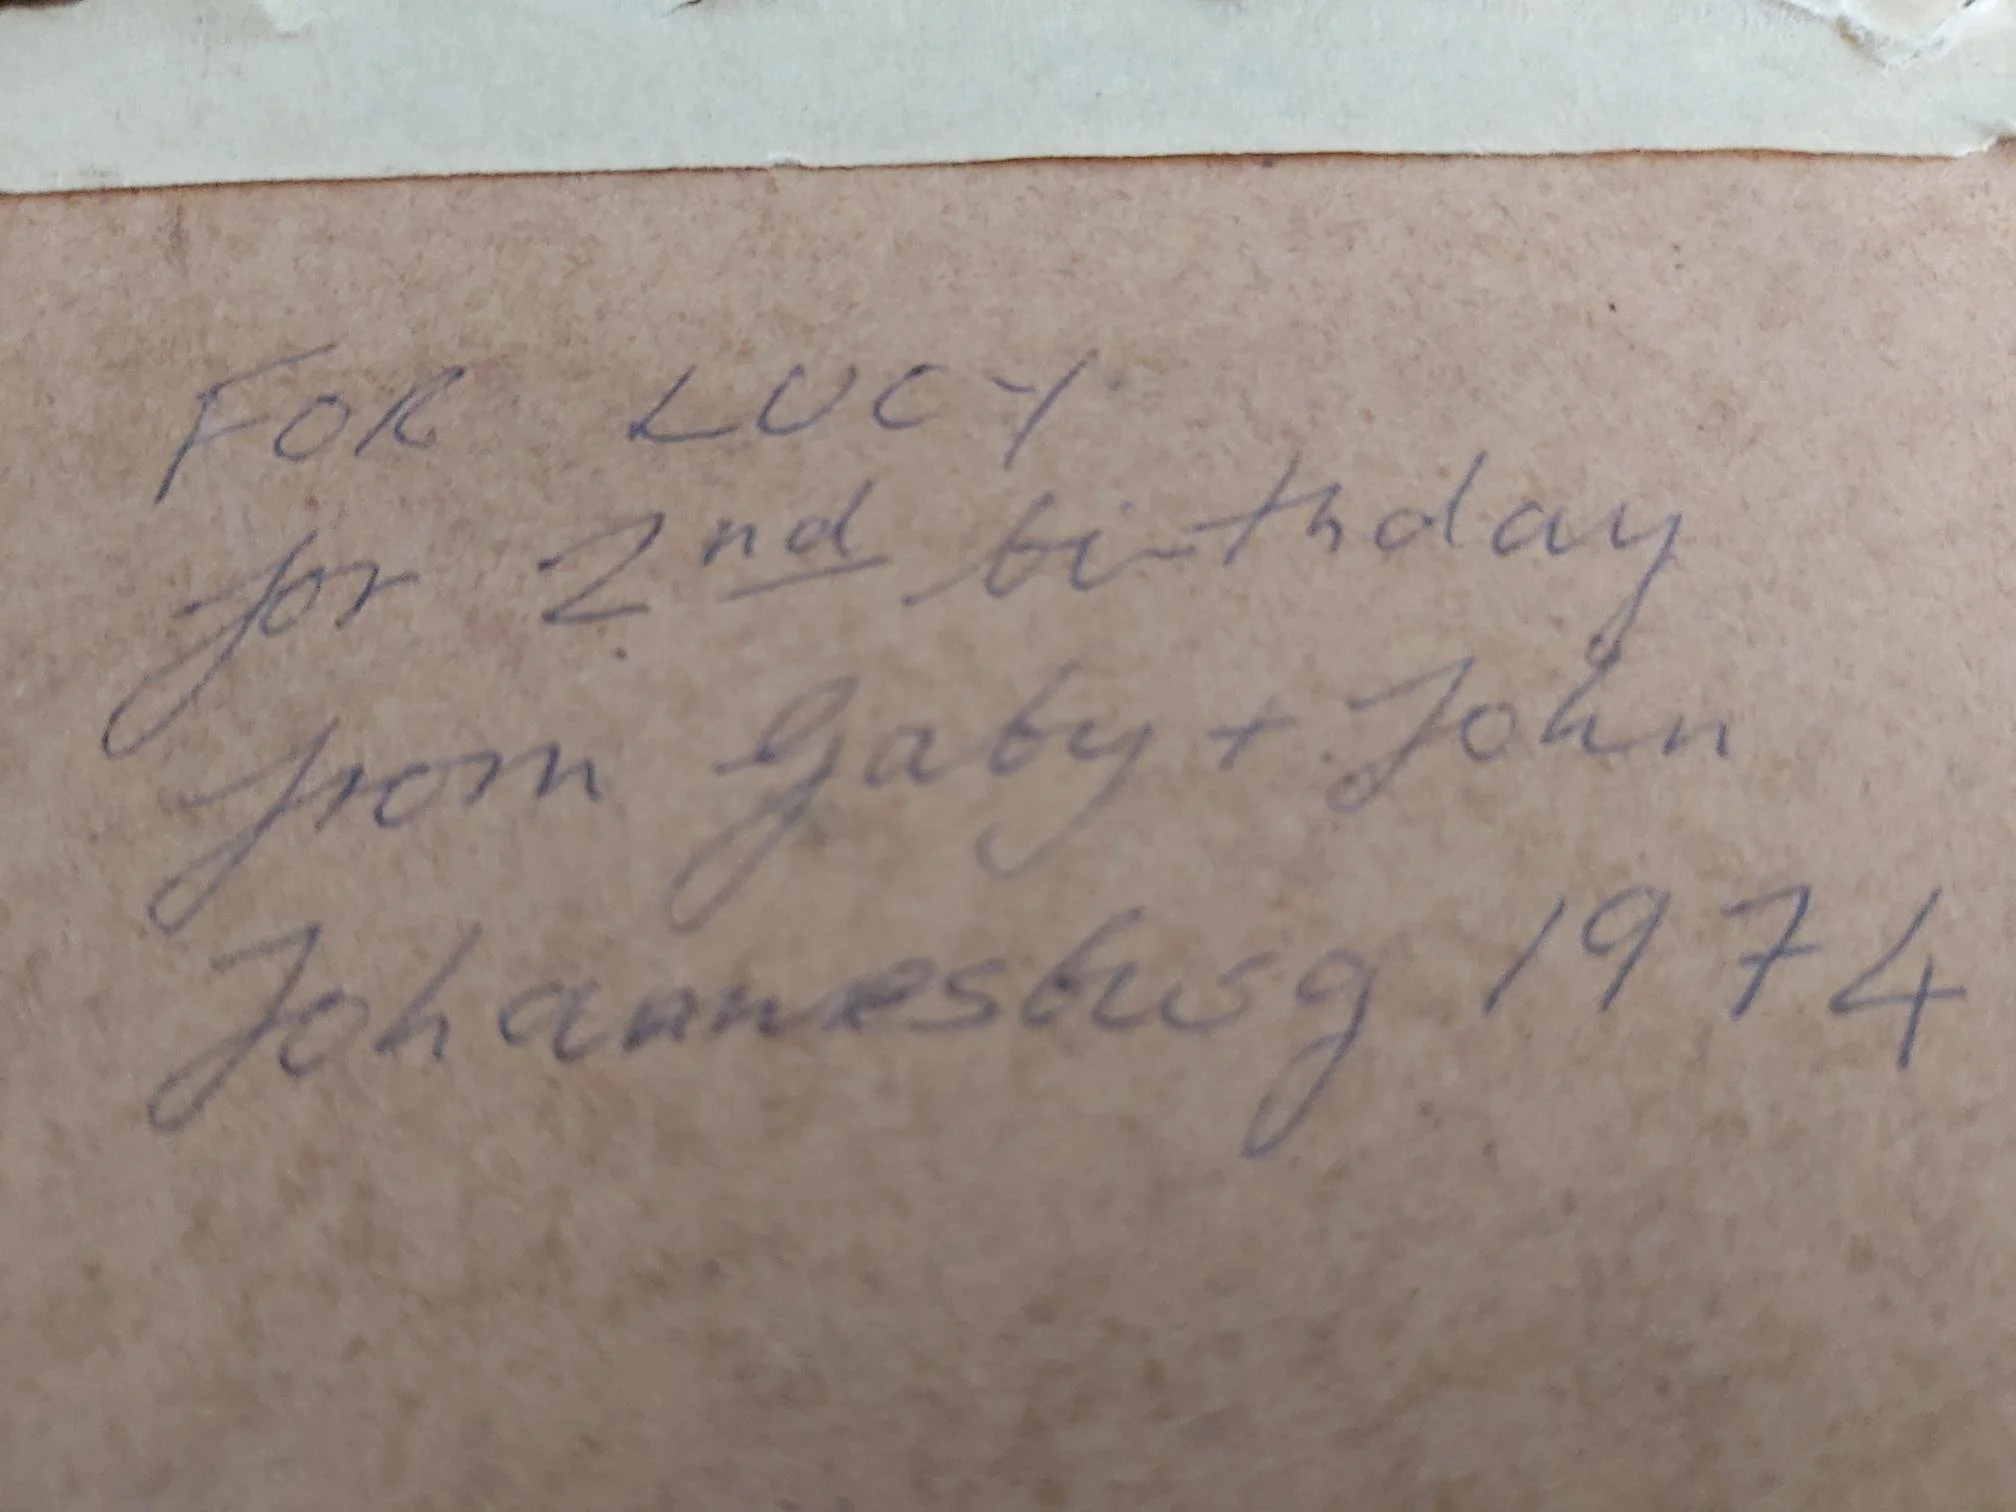 FOR LUCY
for 2nd birthday
from Gaby + John
Johannesburg 1974